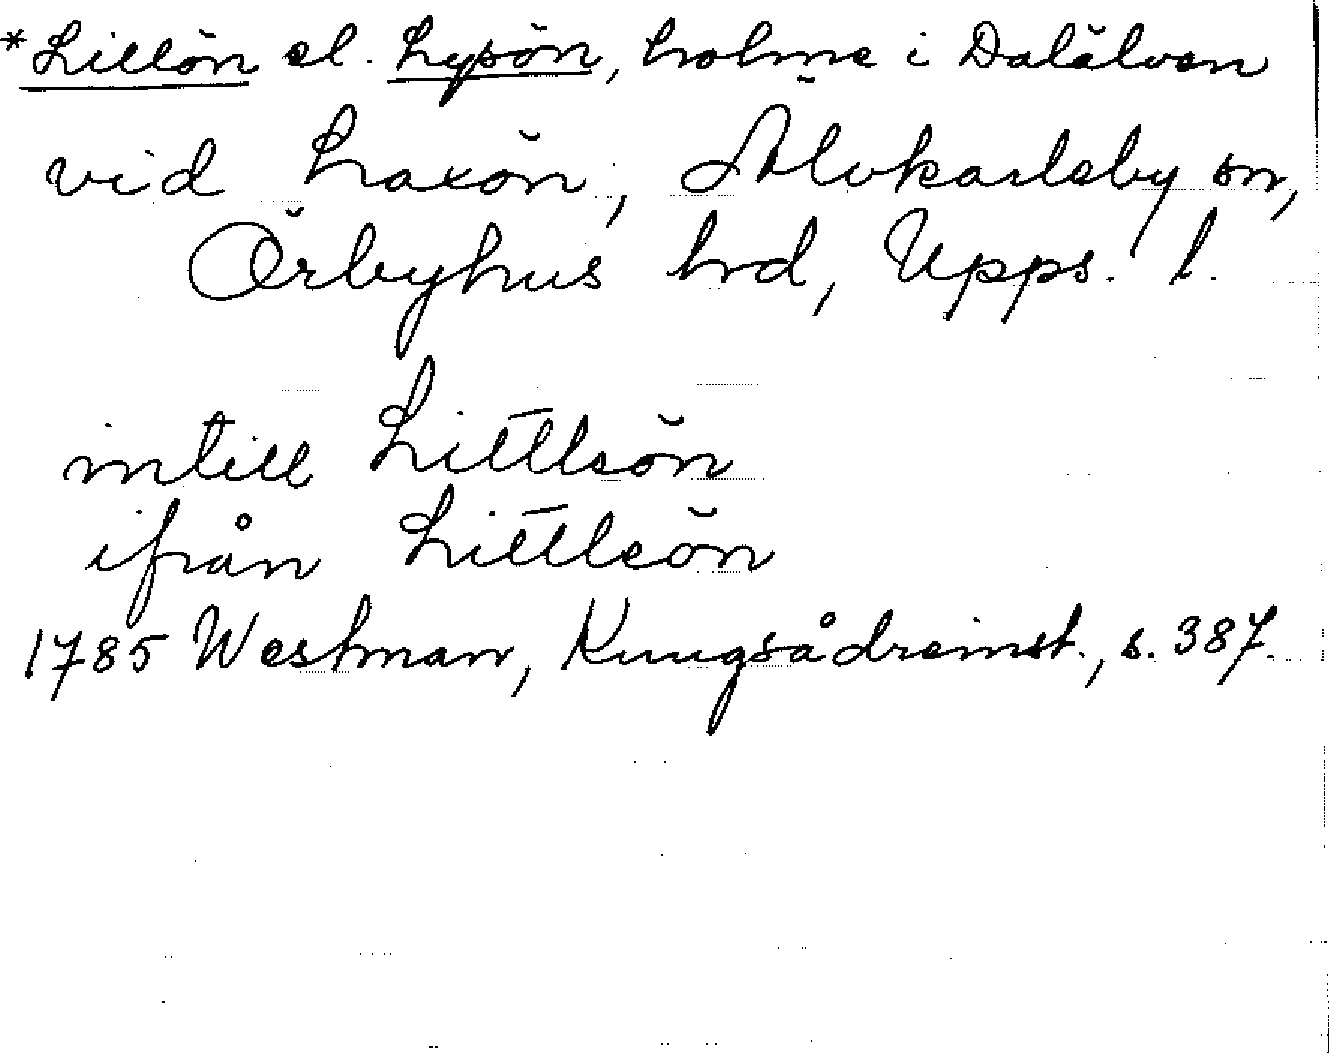 *Lillön el. Lysön, holme i Dalälven
vid Laxön, Älvkarleby sn,
Örbyhus hd, Upps. l.
intill Littleön
ifrån Littleön
1785 Westman, Kungsådreinst., s. 387.